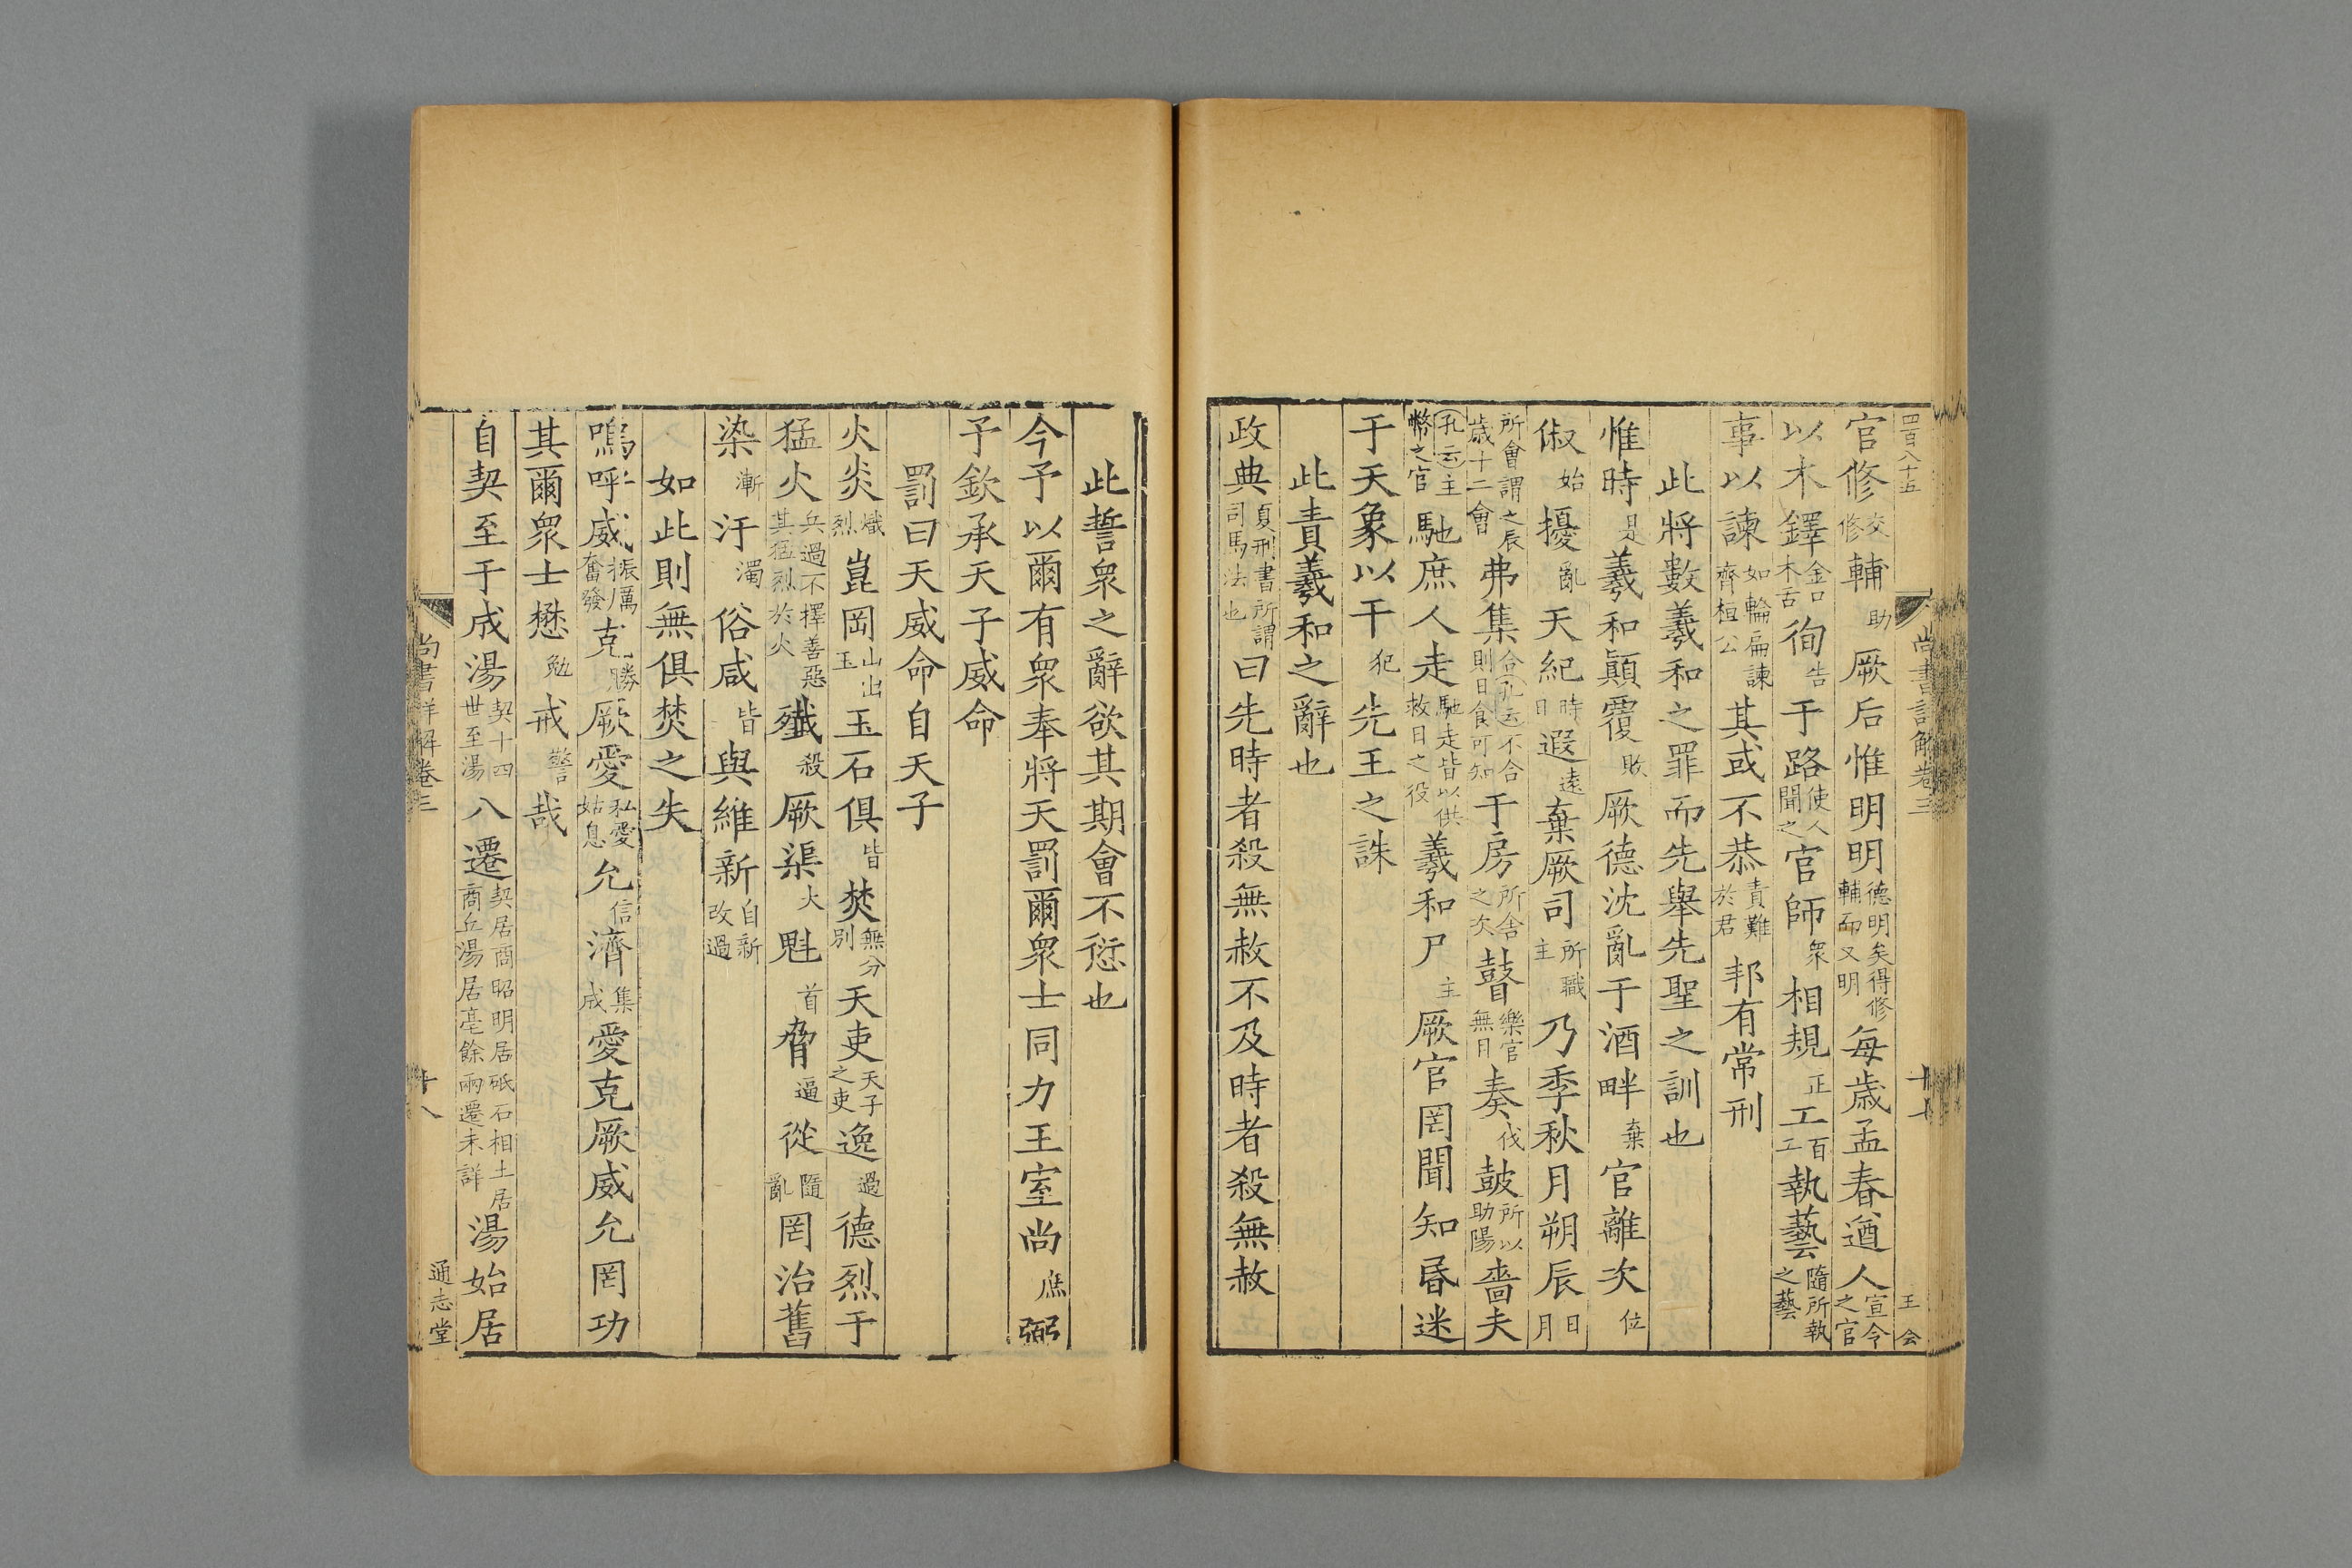 四百八十五
尚書詳解卷三
十七
王会
官修交修輔助厥后惟明明德明矣得修輔而又明每歲孟春遒人宣令之官
以木鐸金口木舌徇告于路使人聞之官師衆相規正工百工執藝隨所執之藝
事以諫如輪扁諫齊桓公其或不恭責難於君邦有常刑
此將數羲和之罪而先舉先聖之訓也
惟時是羲和顛覆敗厥德沈亂于酒畔棄官離次位
俶始擾亂天紀時日遐遠棄厥司所職主乃季秋月朔辰日月
所會謂之辰歲十二會弗集合孔云不合則日食可知于房所舍之次瞽樂官無目奏伐鼓所以助陽嗇夫
孔云主幣之官馳庶人走馳走皆以供救日之役羲和尸主厥官罔聞知昏迷
于天象以干犯先王之誅
此責羲和之辭也
政典夏刑書所謂司馬法也曰先時者殺無赦不及時者殺無赦
此誓衆之辭欲其期會不愆也
今予以爾有衆奉將天罰爾衆士同力王室尚庶弼
予欽承天子威命
罰曰天威命自天子
火炎熾烈崑岡山出玉玉石俱皆焚無分別天吏天子之吏逸過德烈于
猛火兵過不擇善惡其猛烈於火殲殺厥渠大魁首脅逼從隨亂罔治舊
染漸汙濁俗咸皆與維新自新改過
如此則無俱焚之失
嗚呼威振厲奮發克勝厥愛私愛姑息允信濟集成愛克厥威允罔功
其爾衆士懋勉戒警哉
自契至于成湯契十四世至湯八遷契居商昭明居砥石相土居商丘湯居亳餘兩遷未詳湯始居
尚書詳解卷三
十八
通志堂